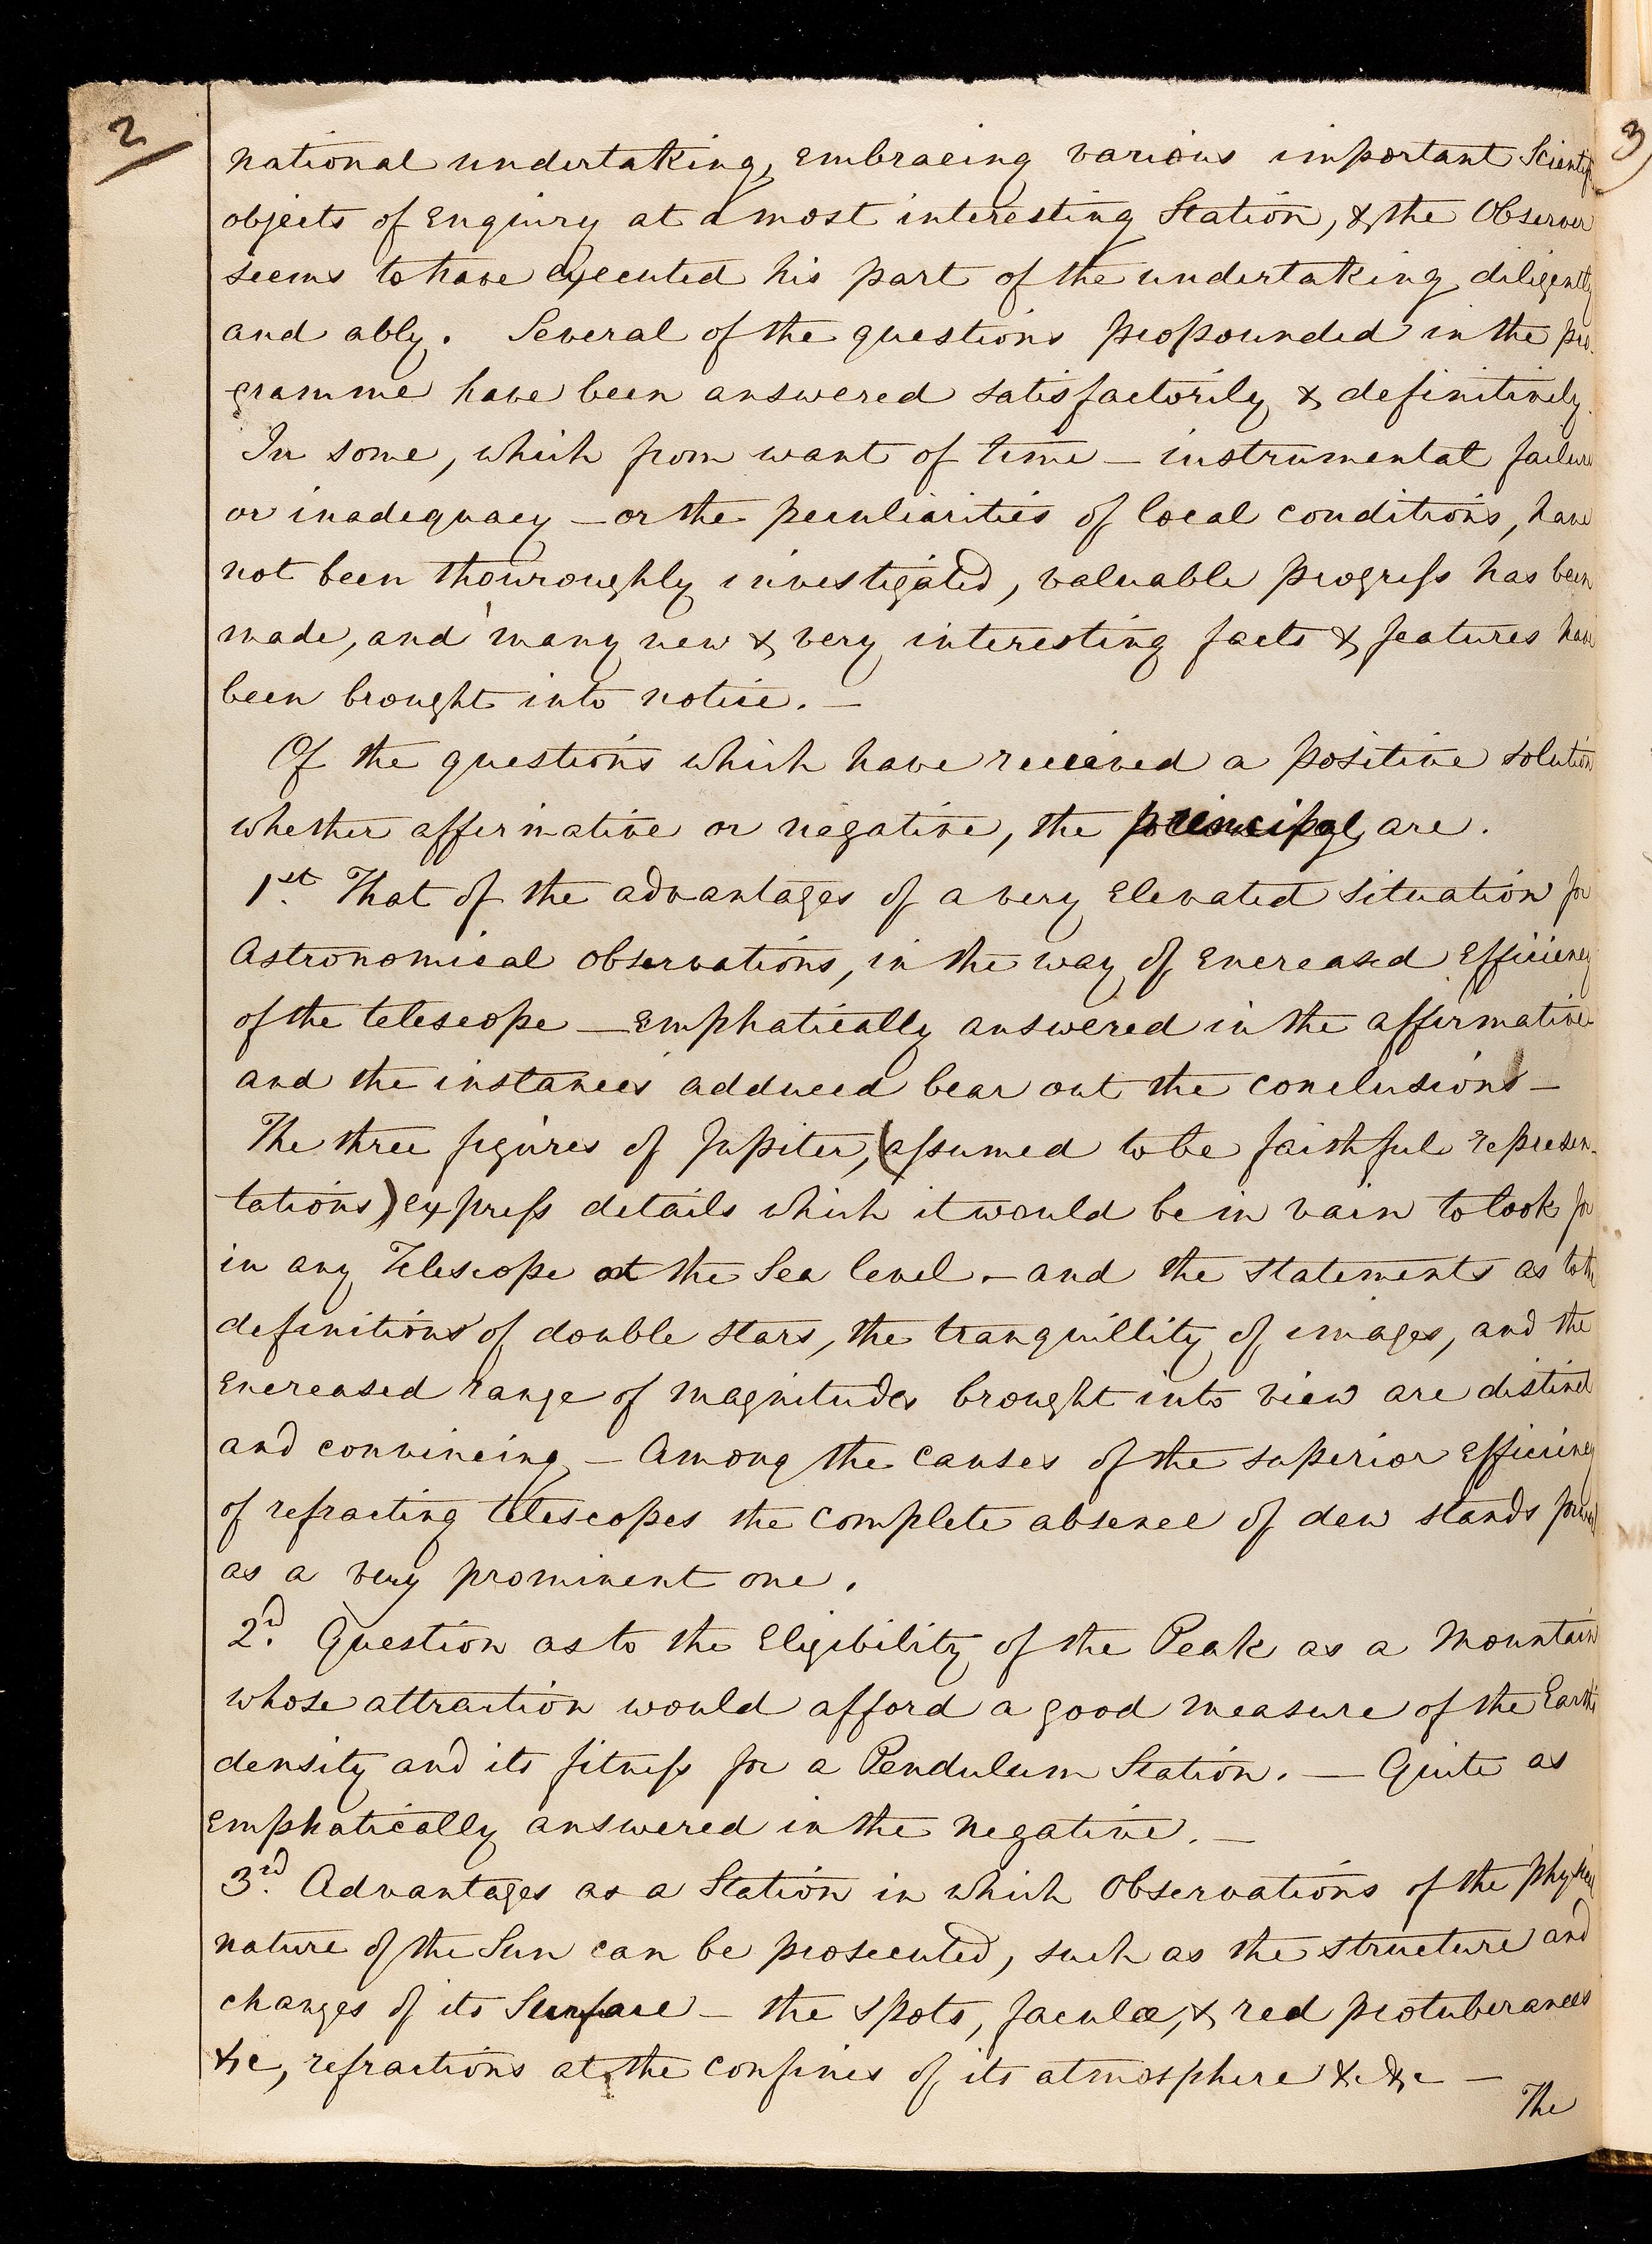 2
3
national undertaking, embracing various important Scientif
objects of Enquiry at a most interesting Station, & the Observer
seems to have executed his part of the undertaking diligently
and ably. Several of the questions propounded in the pro-
gramme have been answered satisfactorily & definitively.
In some, which from want of time — instrumental failure
or inadequacy — or the peculiarities of local conditions, have
not been thouroughly investigated, valuable progress has been
made, and many new & very interesting facts & features have
been brought into notice. —
Of the questions which have received a positive solution
whether affirmative or negative, the principal are.
1st. That of the advantages of a very Elevated situation for
Astronomical Observations, in the way of Encreased Efficiency
of the telescope — Emphatically answered in the affirmative
and the instances adduced bear out the conclusions —
The three figures of Jupiter, (assumed to be faithful represen-
tations) express details which it would be in vain to look for
in any Telescope at the Sea level. — and the statements as to the
definitions of double stars, the tranquillity of images, and the
Encreased range of magnitudes brought into view are distinct
and convincing. — Among the causes of the superior Efficiency
of refracting telescopes the complete absence of dew stands forward
as a very prominent one.
2d. Question as to the Eligibility of the Peak as a Mountain
whose attraction would afford a good measure of the Earth's
density and its fitness for a Pendulum Station. — Quite as
Emphatically answered in the Negative. —
3rd. Advantages as a Station in which Observations of the physical
nature of the Sun can be prosecuted, such as the structure and
changes of its Surface — the spots, faculæ, & red protuberances
&c, refractions at the confines of its atmosphere &c &c —
The